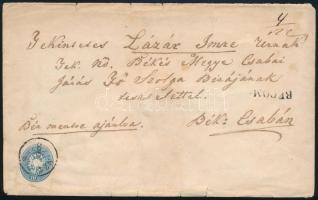 4
Tekintetes Lázár Imre Urnak
Tek. NS. Békés Megye Csabai
Járás Fő Szolga Birájának
tisztelettel.
RECOM
Bér mentve ajánlva.
Bék: Csabán